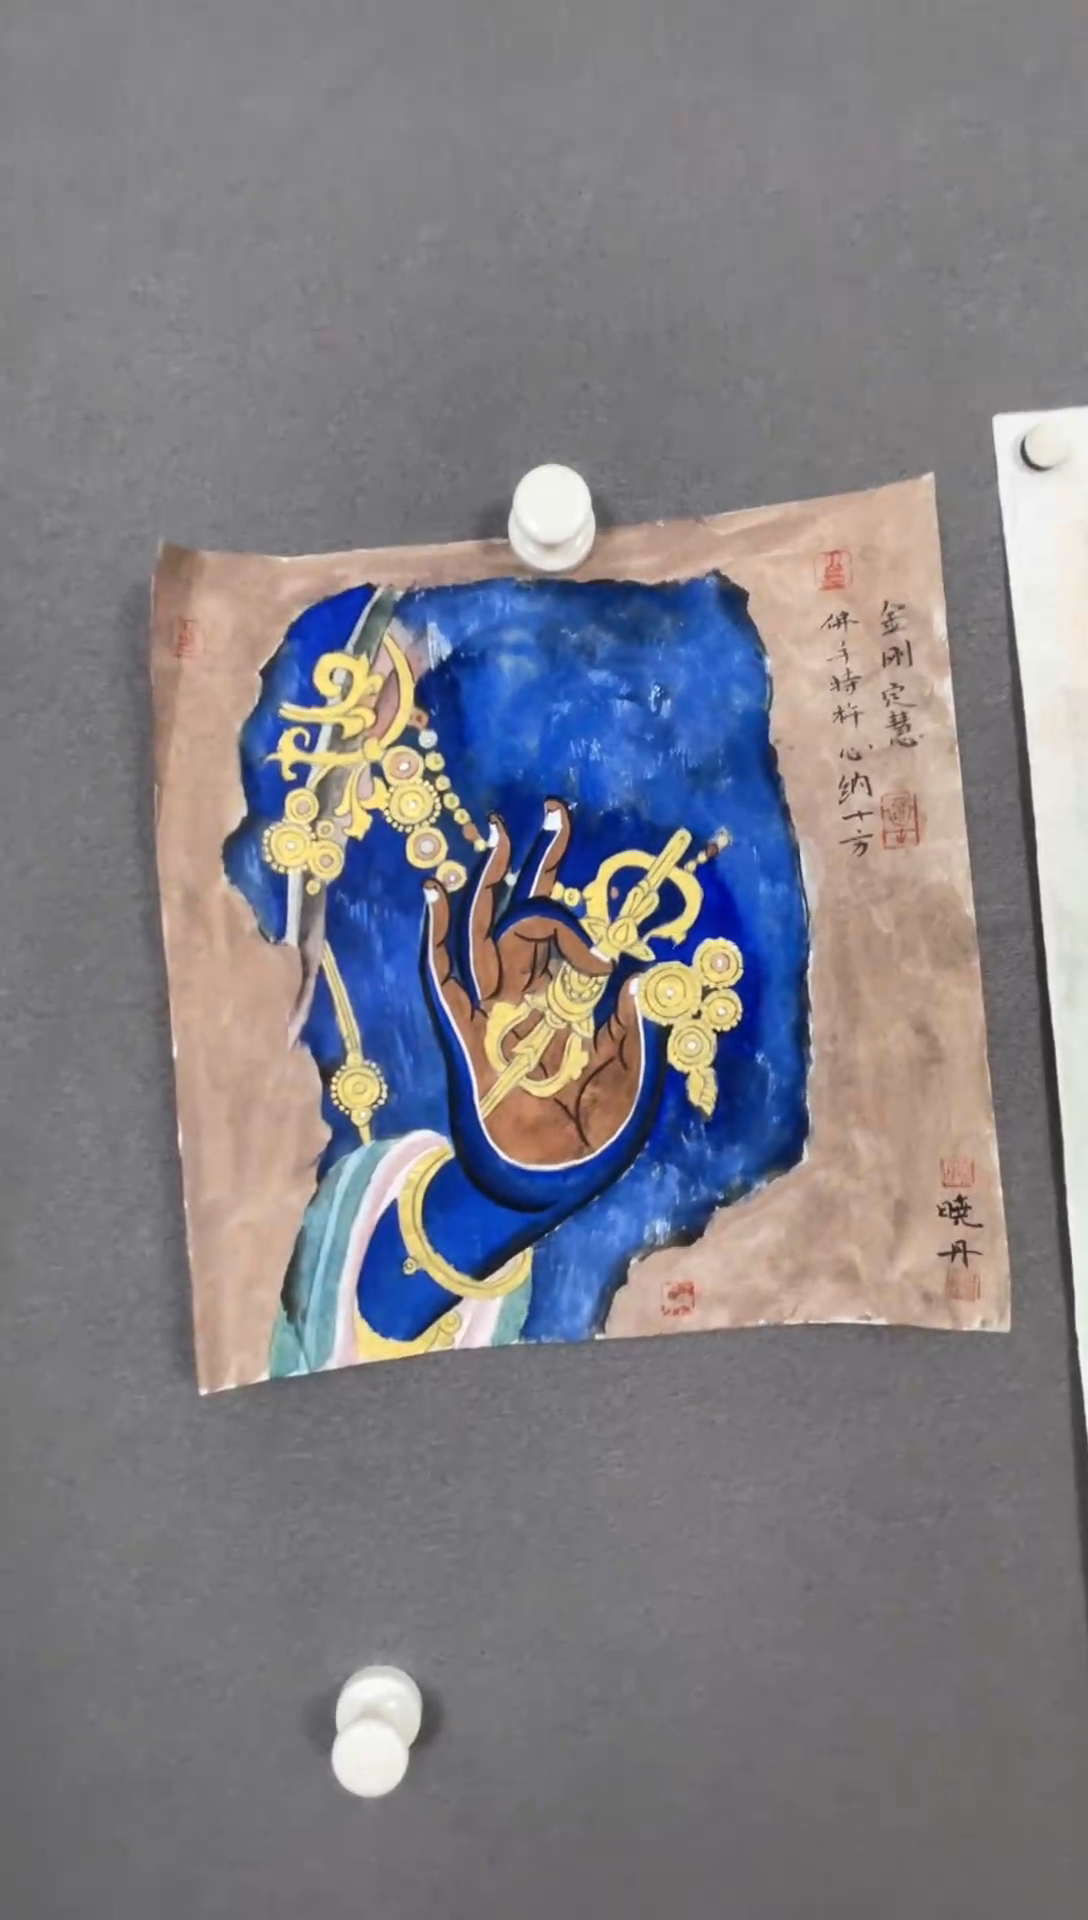 金刚定慧
佛手持杵心纳十方
晓丹